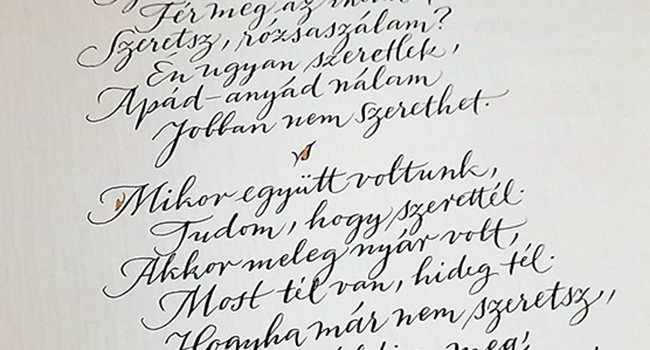 Fér meg az
Szeretsz, rózsaszálam?
Én ugyan szeretlek,
Apád-anyád nálam
Jobban nem szerethet.
Mikor együtt voltunk,
Tudom, hogy szerettél.
Akkor meleg nyár volt,
Most tél van, hideg tél.
Hogyha már nem szeretsz,
meg,